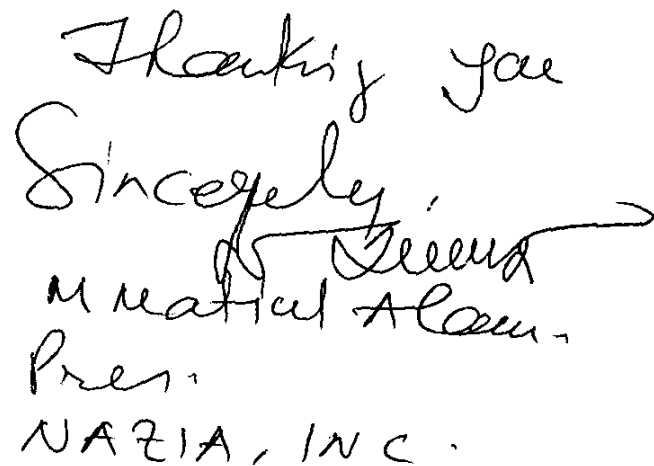 Thanking you
Sincerely,
M Matiul Alam.
Pres.
NAZIA, INC.